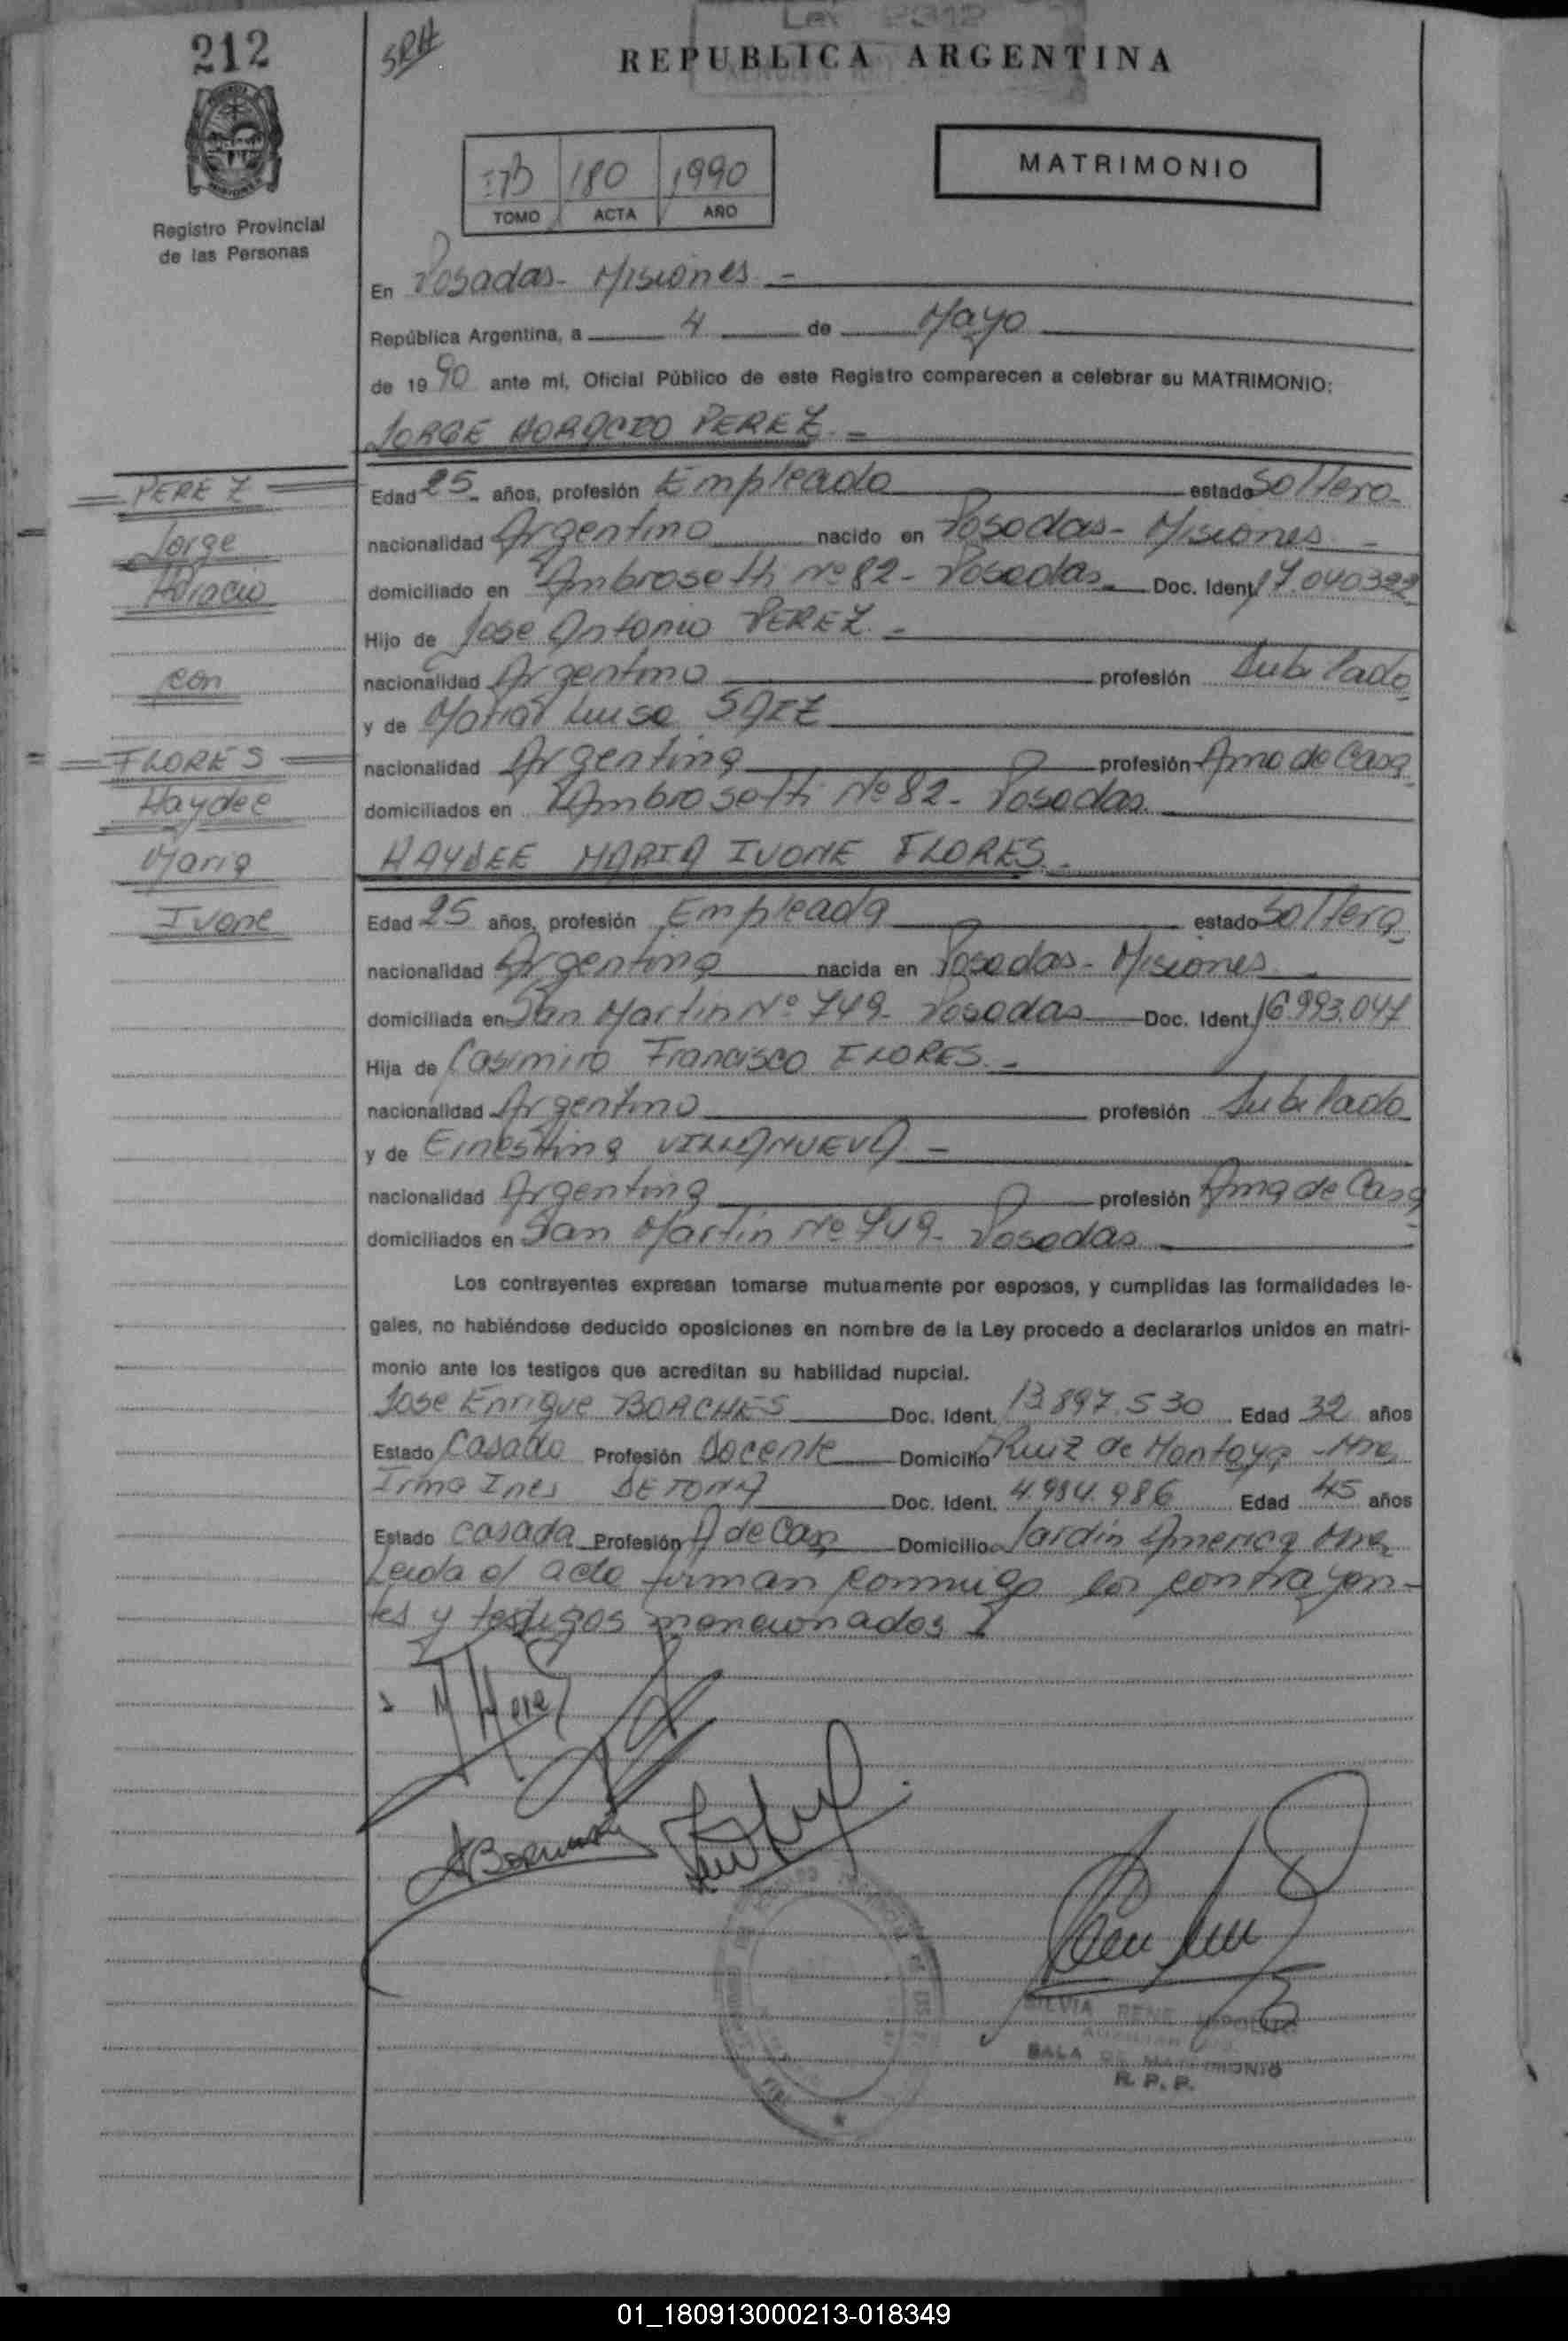 212
SRH
Ley 2312
REPUBLICA ARGENTINA
MATRIMONIO
180 1990
TOMO ACTA AÑO
Registro Provincial
de las Personas
En Posadas- Misiones -
República Argentina, a 4 de Mayo
de 1990 ante mi, Oficial Público de este Registro comparecen a celebrar su MATRIMONIO:
JORGE HORACIO PEREZ.-
PEREZ
Jorge
Horacio
con
FLORES
Haydee
Maria
Ivone
Edad 25 años, profesión Empleado estado Soltero-
nacionalidad Argentino nacido en Posadas- Misiones -
domiciliado en Ambrosetti Nº 82- Posadas Doc. Ident. 17.040322
Hijo de Jose Antonio PEREZ.-
nacionalidad Argentino profesión Jubilado
y de Maria Luisa SAEZ
nacionalidad Argentina profesión Ama de Casa
domiciliados en Ambrosetti Nº 82- Posadas
HAYDEE MARIA IVONE FLORES.-
Edad 25 años, profesión Empleada estado Soltera
nacionalidad Argentina nacida en Posadas- Misiones
domiciliada en San Martin Nº 749- Posadas Doc. Ident. 16.993.047
Hija de Casimiro Francisco FLORES.-
nacionalidad Argentino profesión Jubilado
y de Ernestina VILLANUEVA -
nacionalidad Argentina profesión Ama de Casa
domiciliados en San Martin Nº 749- Posadas
Los contrayentes expresan tomarse mutuamente por esposos, y cumplidas las formalidades le-
gales, no habiéndose deducido oposiciones en nombre de la Ley procedo a declararlos unidos en matri-
monio ante los testigos que acreditan su habilidad nupcial.
Jose Enrique BORCHES Doc. Ident. 13.897.530 Edad 32 años
Estado Casado Profesión Docente Domicilio Ruiz de Montoya -Mnes
Irma Ines Doc. Ident. 4.984.986 Edad 45 años
Estado casada Profesión A de Casa Domicilio Jardín America Mnes
Leida el acta firman conmigo los contrayen-
tes y testigos mencionados
SILVIA RENE
SALA DE MATRIMONIO
R. P. P.
01_180913000213-018349